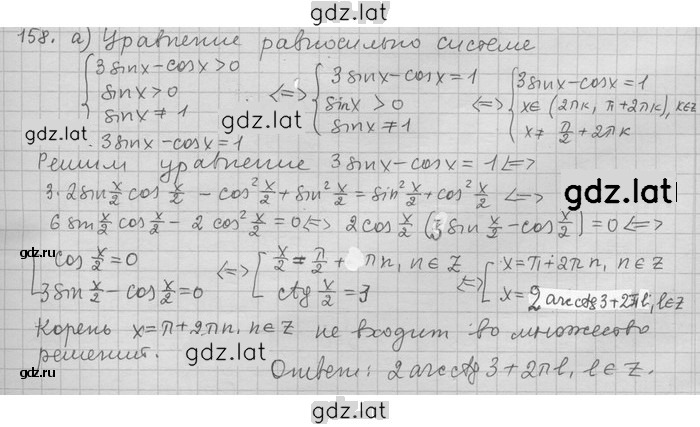 gdz.lat
158. а) Уравнение равносильно системе
{ 3sinx-cosx>0 ; sinx>0 ; sinx≠1 ; 3sinx-cosx=1 <=> { 3sinx-cosx=1 ; sinx>0 ; sinx≠1 <=> { 3sinx-cosx=1 ; x∈(2πк, π+2πк), к∈z ; x≠ π/2+2πк
gdz.lat
gdz.lat
gdz.lat
Решим уравнение 3sinx-cosx=1<=>
gdz.lat
3·2sin x/2 cos x/2 - cos² x/2 + sin² x/2 = sin² x/2 + cos² x/2 <=>
gdz.lat
6sin x/2 cos x/2 - 2cos² x/2 = 0<=> 2cos x/2 (3sin x/2 - cos x/2) = 0<=>
gdz.lat
[ cos x/2 = 0 ; 3sin x/2 - cos x/2 = 0 <=> [ x/2 = π/2 + πn, n∈Z ; ctg x/2 = 3 <=> [ x=π+2πn, n∈Z ; x=2arcctg3+2πl, l∈Z
gdz.lat
Корень x=π+2πn, n∈Z не входит во множество
решений.
gdz.lat
gdz.lat
Ответ: 2arcctg3+2πl, l∈Z.
gdz.lat